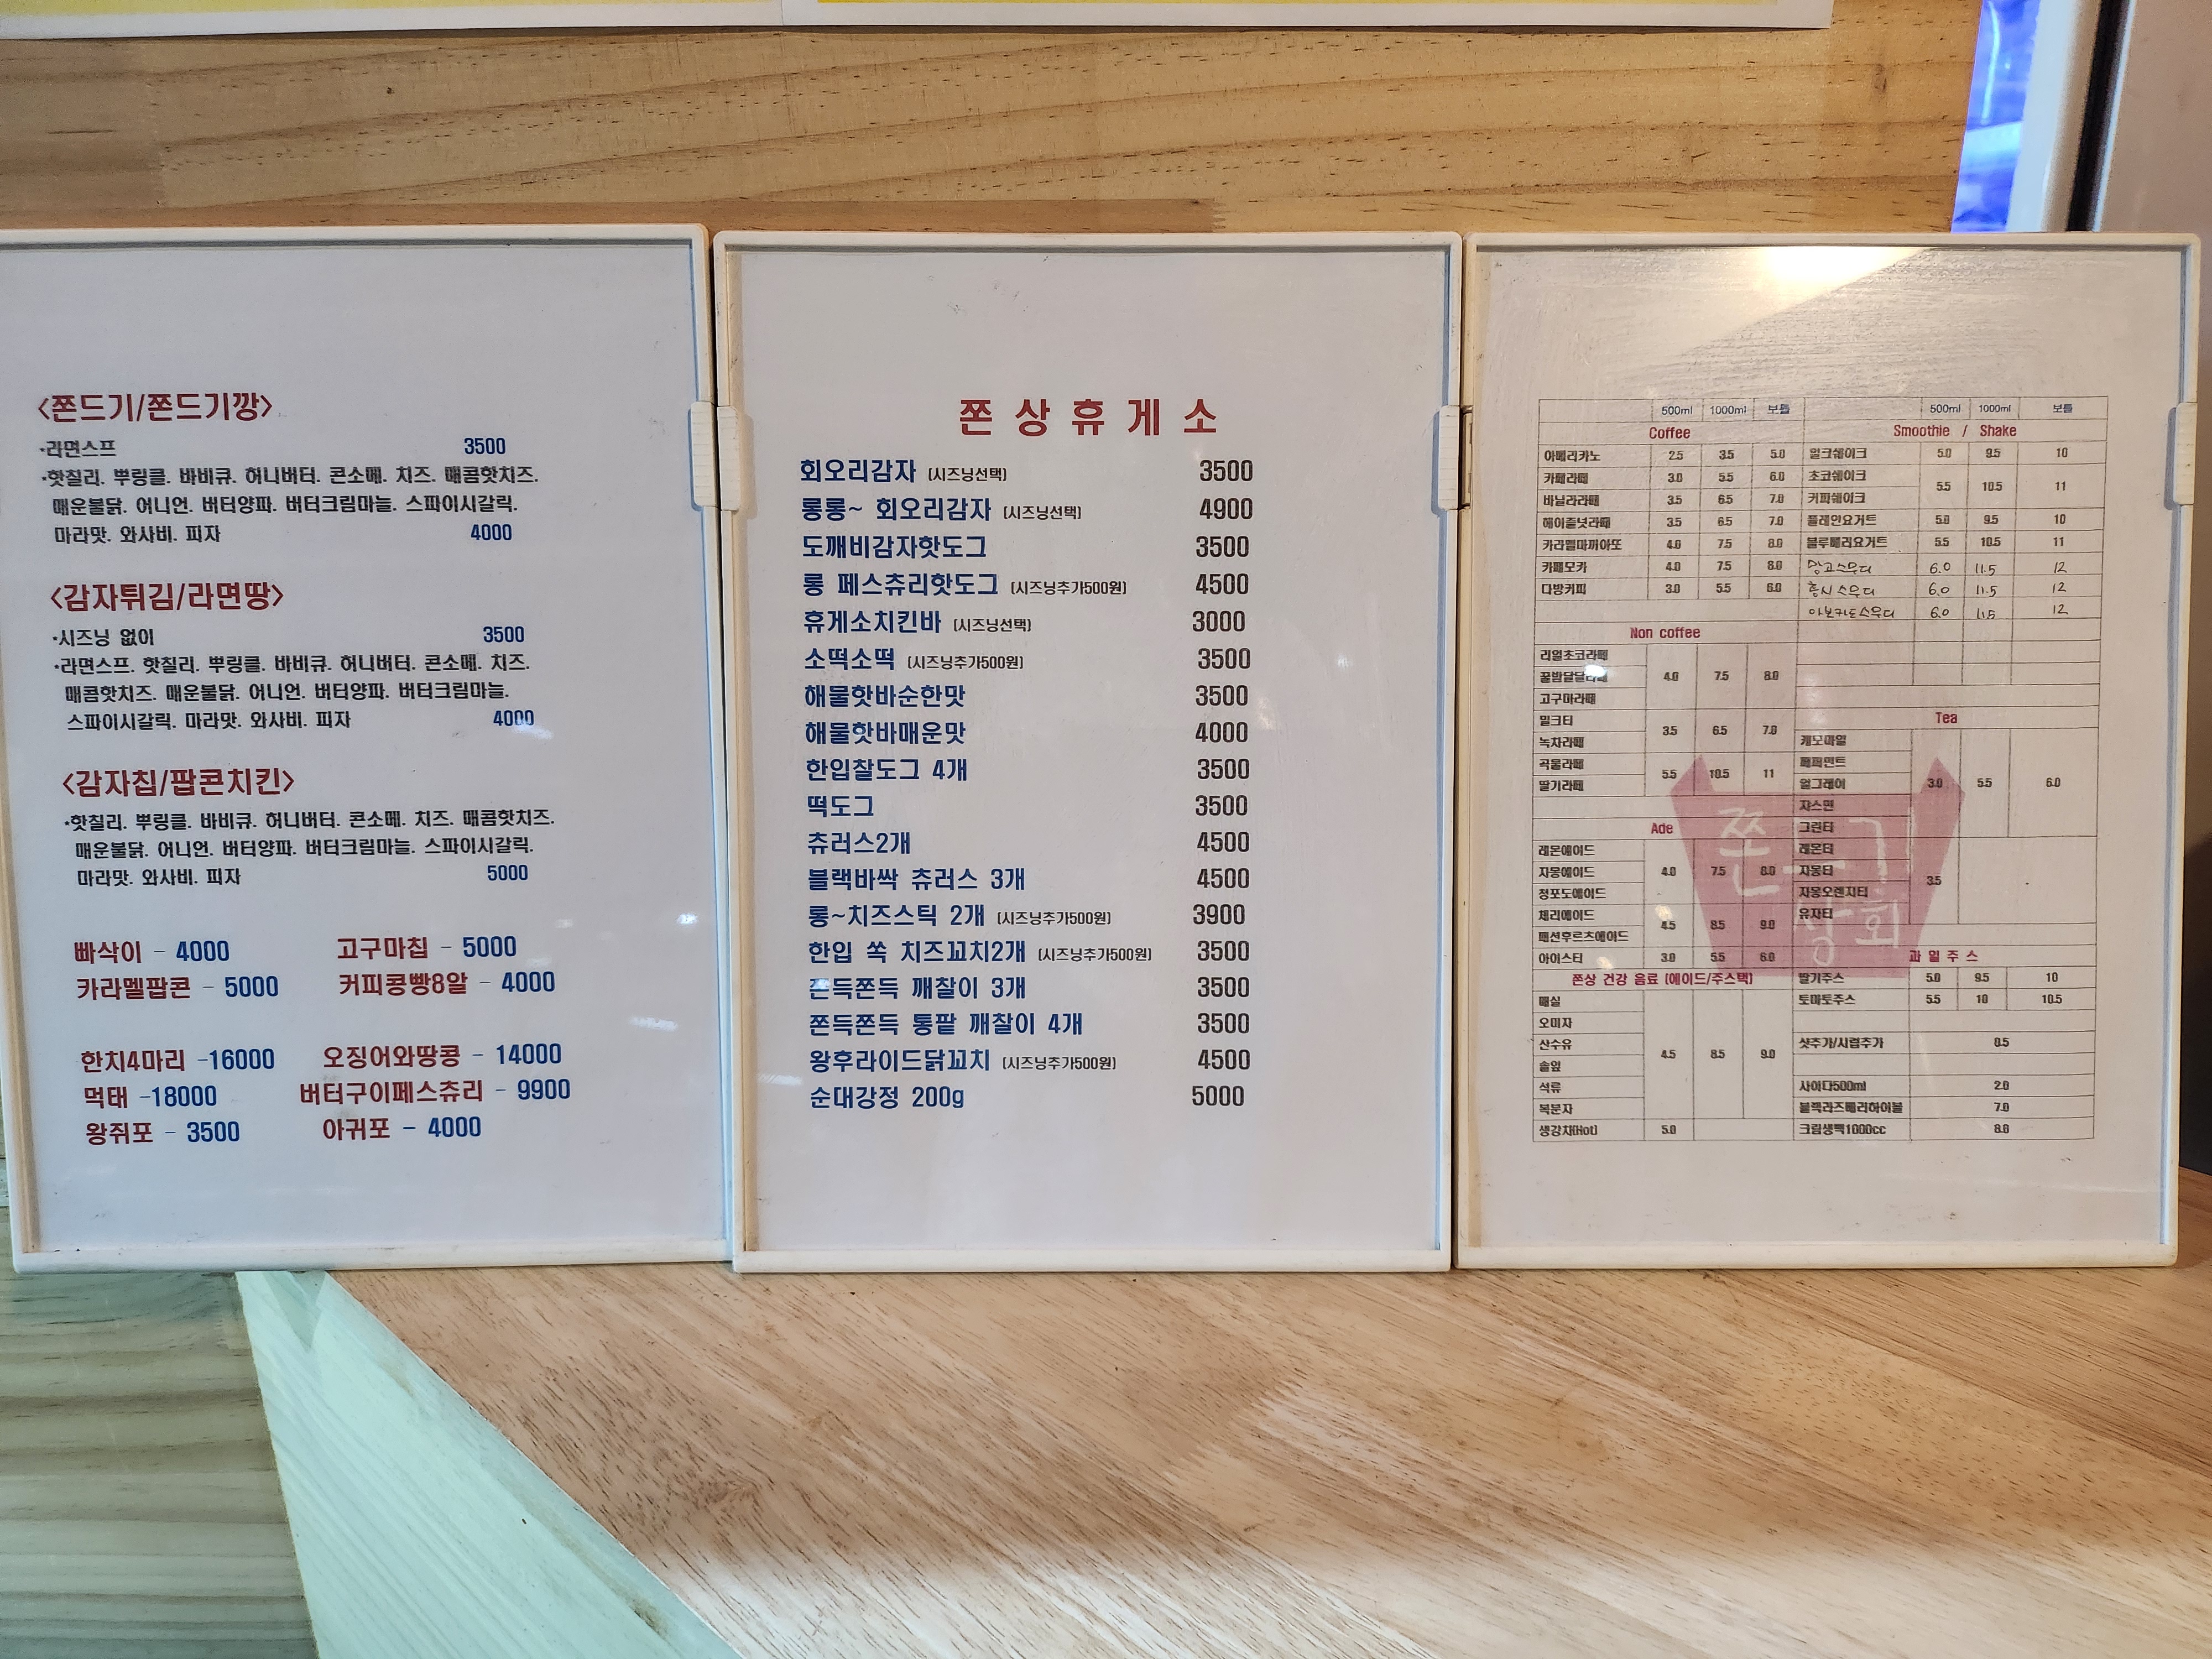 <쫀드기/쫀드기깡>
·라면스프 3500
·핫칠리. 뿌링클. 바비큐. 허니버터. 콘소메. 치즈. 매콤핫치즈.
매운불닭. 어니언. 버터양파. 버터크림마늘. 스파이시갈릭.
마라맛. 와사비. 피자 4000
<감자튀김/라면땅>
·시즈닝 없이 3500
·라면스프. 핫칠리. 뿌링클. 바비큐. 허니버터. 콘소메. 치즈.
매콤핫치즈. 매운불닭. 어니언. 버터양파. 버터크림마늘.
스파이시갈릭. 마라맛. 와사비. 피자 4000
<감자칩/팝콘치킨>
·핫칠리. 뿌링클. 바비큐. 허니버터. 콘소메. 치즈. 매콤핫치즈.
매운불닭. 어니언. 버터양파. 버터크림마늘. 스파이시갈릭.
마라맛. 와사비. 피자 5000
빠삭이 - 4000 고구마칩 - 5000
카라멜팝콘 - 5000 커피콩빵8알 - 4000
한치4마리 -16000 오징어와땅콩 - 14000
먹태 -18000 버터구이페스츄리 - 9900
왕쥐포 - 3500 아귀포 - 4000
쫀상휴게소
회오리감자 (시즈닝선택) 3500
롱롱~ 회오리감자 (시즈닝선택) 4900
도깨비감자핫도그 3500
롱 페스츄리핫도그 (시즈닝추가500원) 4500
휴게소치킨바 (시즈닝선택) 3000
소떡소떡 (시즈닝추가500원) 3500
해물핫바순한맛 3500
해물핫바매운맛 4000
한입찰도그 4개 3500
떡도그 3500
츄러스2개 4500
블랙바싹 츄러스 3개 4500
롱~치즈스틱 2개 (시즈닝추가500원) 3900
한입 쏙 치즈꼬치2개 (시즈닝추가500원) 3500
쫀득쫀득 깨찰이 3개 3500
쫀득쫀득 통팥 깨찰이 4개 3500
왕후라이드닭꼬치 (시즈닝추가500원) 4500
순대강정 200g 5000
500ml 1000ml 보틀
Coffee
아메리카노 2.5 3.5 5.0
카페라떼 3.0 5.5 6.0
바닐라라떼 3.5 6.5 7.0
헤이즐넛라떼 3.5 6.5 7.0
카라멜마끼아또 4.0 7.5 8.0
카페모카 4.0 7.5 8.0
다방커피 3.0 5.5 6.0
Non coffee
리얼초코라떼
꿀밤달달라떼 4.0 7.5 8.0
고구마라떼
밀크티
녹차라떼 3.5 6.5 7.0
곡물라떼
딸기라떼 5.5 10.5 11
Ade
레몬에이드
자몽에이드 4.0 7.5 8.0
청포도에이드
체리에이드
패션후르츠에이드 4.5 8.5 9.0
아이스티 3.0 5.5 6.0
쫀상 건강 음료 (에이드/주스택)
매실
오미자
산수유
솔잎 4.5 8.5 9.0
석류
복분자
생강차(Hot) 5.0
500ml 1000ml 보틀
Smoothie / Shake
밀크쉐이크 5.0 9.5 10
초코쉐이크
커피쉐이크 5.5 10.5 11
플레인요거트 5.0 9.5 10
블루베리요거트 5.5 10.5 11
망고스무디 6.0 11.5 12
홍시스무디 6.0 11.5 12
아보카도스무디 6.0 11.5 12
Tea
캐모마일
페퍼민트
얼그레이 3.0 5.5 6.0
자스민
그린티
레몬티
자몽티
자몽오렌지티 3.5
유자티
과일주스
딸기주스 5.0 9.5 10
토마토주스 5.5 10 10.5
샷추가/시럽추가 0.5
사이다500ml 2.0
블랙라즈베리하이볼 7.0
크림생맥1000cc 8.0
쫀드기
상회